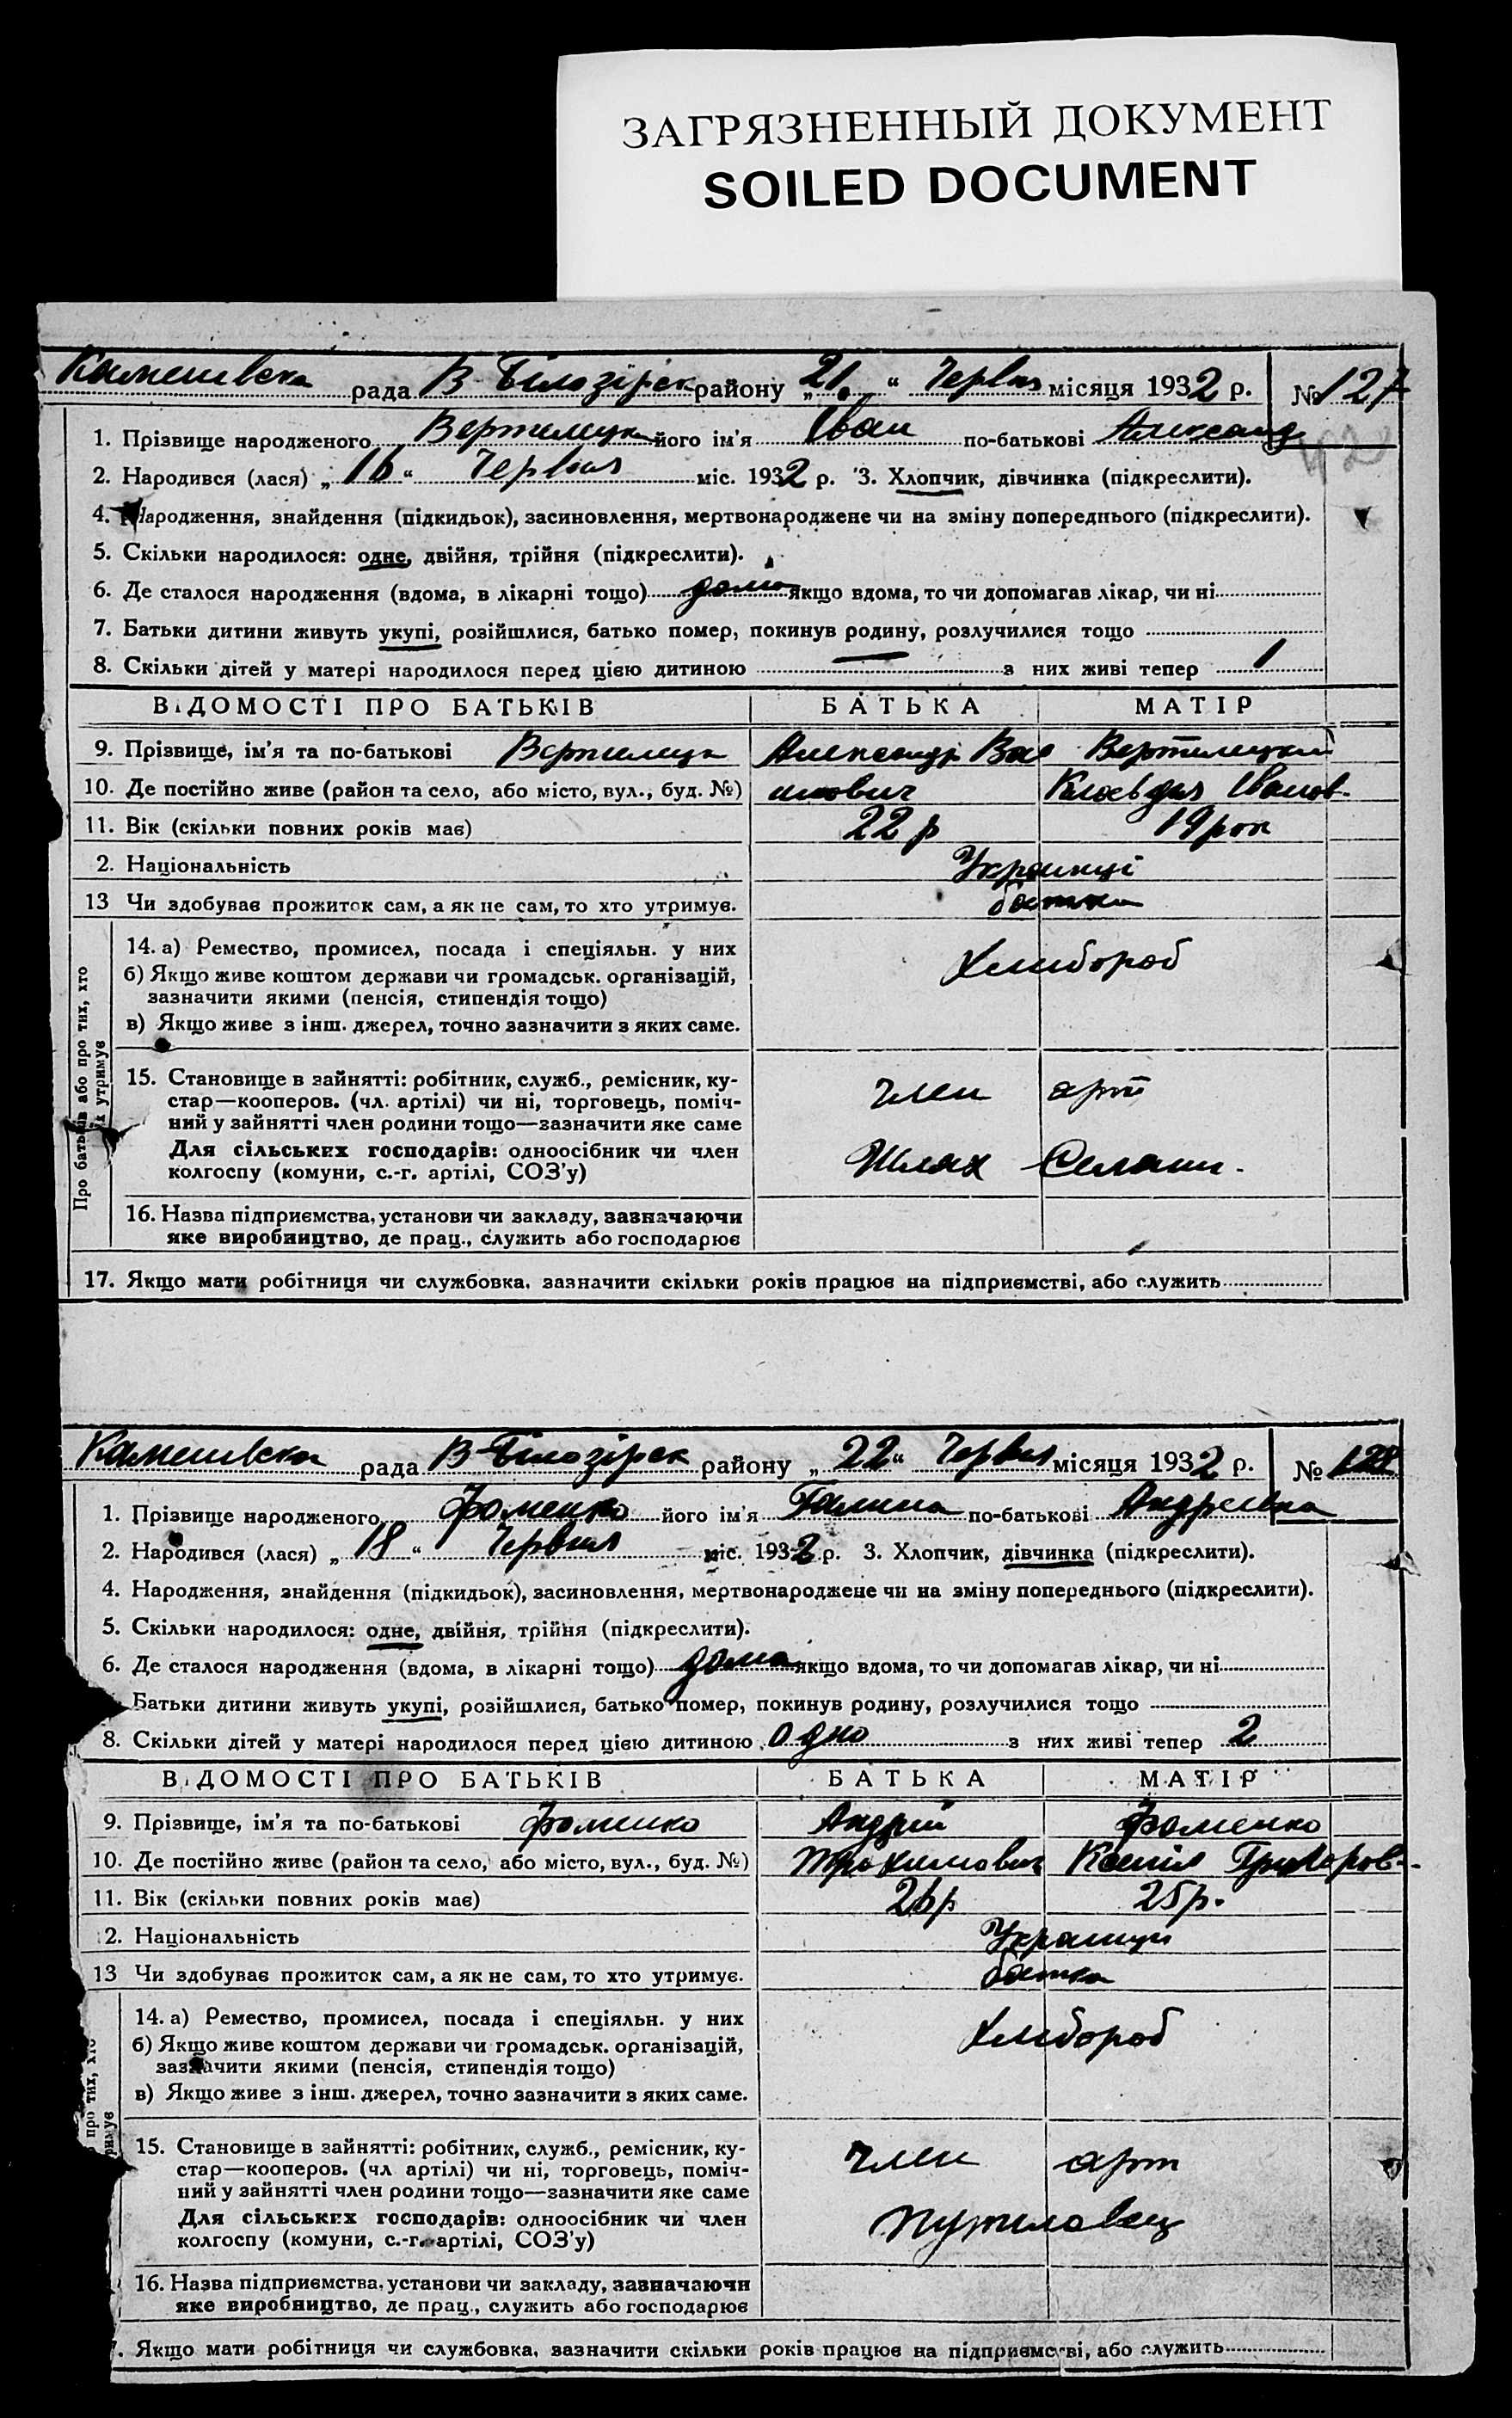 ЗАГРЯЗНЕННЫЙ ДОКУМЕНТ
SOILED DOCUMENT
рада В-Білозірск району „21.“ Червня місяця 1932 р. № 127
1. Прізвище народженого Вертелецки його ім'я Іван по-батькові Александ
2. Народився (лася) „16“ Червня міс. 1932 р. 3. Хлопчик, дівчинка (підкреслити).
4. Народження, знайдення (підкидьок), засиновлення, мертвонароджене чи на зміну попереднього (підкреслити).
5. Скільки народилося: одне, двійня, трійня (підкреслити).
6. Де сталося народження (вдома, в лікарні тощо) дома якщо вдома, то чи допомагав лікар, чи ні
7. Батьки дитини живуть укупі, розійшлися, батько помер, покинув родину, розлучилися тощо
8. Скільки дітей у матері народилося перед цією дитиною — з них живі тепер 1
ВІДОМОСТІ ПРО БАТЬКІВ БАТЬКА МАТІР
9. Прізвище, ім'я та по-батькові Александр
10. Де постійно живе (район та село, або місто, вул., буд. №) Клавдия Іванов-
11. Вік (скільки повних років має) 22 р 19 рок
2. Національність Украинці
13 Чи здобував прожиток сам, а як не сам, то хто утримує. батьки
Про батьків або про тих, хто їх утримує
14. а) Ремество, промисел, посада і спеціяльн. у них Хлибороб
б) Якщо живе коштом держави чи громадськ. організацій,
зазначити якими (пенсія, стипендія тощо)
в) Якщо живе з інш. джерел, точно зазначити з яких саме.
15. Становище в зайнятті: робітник, служб., ремісник, ку-
стар—кооперов. (чл. артілі) чи ні, торговець, поміч- член арт
ний у зайнятті член родини тощо—зазначити яке саме
Для сільських господарів: одноосібник чи член Шлях Селяни-
колгоспу (комуни, с.-г. артілі, СОЗ'у)
16. Назва підприємства, установи чи закладу, зазначаючи
яке виробництво, де прац., служить або господарює
17. Якщо мати робітниця чи службовка, зазначити скільки років працює на підприємстві, або служить
рада В-Білозірск району „22“ Червня місяця 1932 р. № 128
1. Прізвище народженого Фоменко його ім'я Галина по-батькові Андреевна
2. Народився (лася) „18“ Червня міс. 1932 р. 3. Хлопчик, дівчинка (підкреслити).
4. Народження, знайдення (підкидьок), засиновлення, мертвонароджене чи на зміну попереднього (підкреслити).
5. Скільки народилося: одне, двійня, трійня (підкреслити).
6. Де сталося народження (вдома, в лікарні тощо) дома якщо вдома, то чи допомагав лікар, чи ні
Батьки дитини живуть укупі, розійшлися, батько помер, покинув родину, розлучилися тощо
8. Скільки дітей у матері народилося перед цією дитиною одно з них живі тепер 2
ВІДОМОСТІ ПРО БАТЬКІВ БАТЬКА МАТІР
9. Прізвище, ім'я та по-батькові Фоменко Андрий Фоменко
10. Де постійно живе (район та село, або місто, вул., буд. №) Трохимович Ксения Григоров-
11. Вік (скільки повних років має) 26 р 25 р.
2. Національність Украинци
13 Чи здобував прожиток сам, а як не сам, то хто утримує. батька
про тих, хто
14. а) Ремество, промисел, посада і спеціяльн. у них Хлибороб
б) Якщо живе коштом держави чи громадськ. організацій,
зазначити якими (пенсія, стипендія тощо)
в) Якщо живе з інш. джерел, точно зазначити з яких саме.
15. Становище в зайнятті: робітник, служб., ремісник, ку-
стар—кооперов. (чл артілі) чи ні, торговець, поміч- член арт
ний у зайнятті член родини тощо—зазначити яке саме
Для сільських господарів: одноосібник чи член Путиловец
колгоспу (комуни, с.-г. артілі, СОЗ'у)
16. Назва підприємства, установи чи закладу, зазначаючи
яке виробництво, де прац., служить або господарює
. Якщо мати робітниця чи службовка, зазначити скільки років працює на підприємстві, або служить